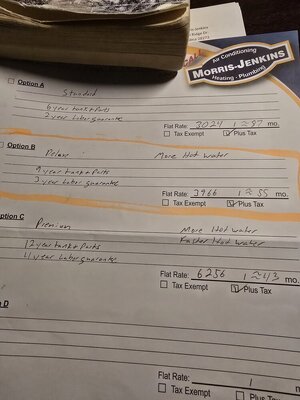 Jenkins
Ridge Dr
28273
Air Conditioning
MORRIS-JENKINS
Heating - Plumbing
Option A
Standard
6 year tank + parts
2 year labor guarantee
Flat Rate: 3024 1 ≈ 87 mo.
Tax Exempt Plus Tax
Option B
Delux More Hot water
9 year tank + parts
3 year labor guarantee
Flat Rate: 3966 1 ≈ 55 mo.
Tax Exempt Plus Tax
Option C
Premium More Hot water
Faster Hot water
12 year tank + parts
4 year labor guarantee
Flat Rate: 6256 1 ≈ 43 mo.
Tax Exempt Plus Tax
D
Flat Rate: 1 m
Tax Exempt Plus